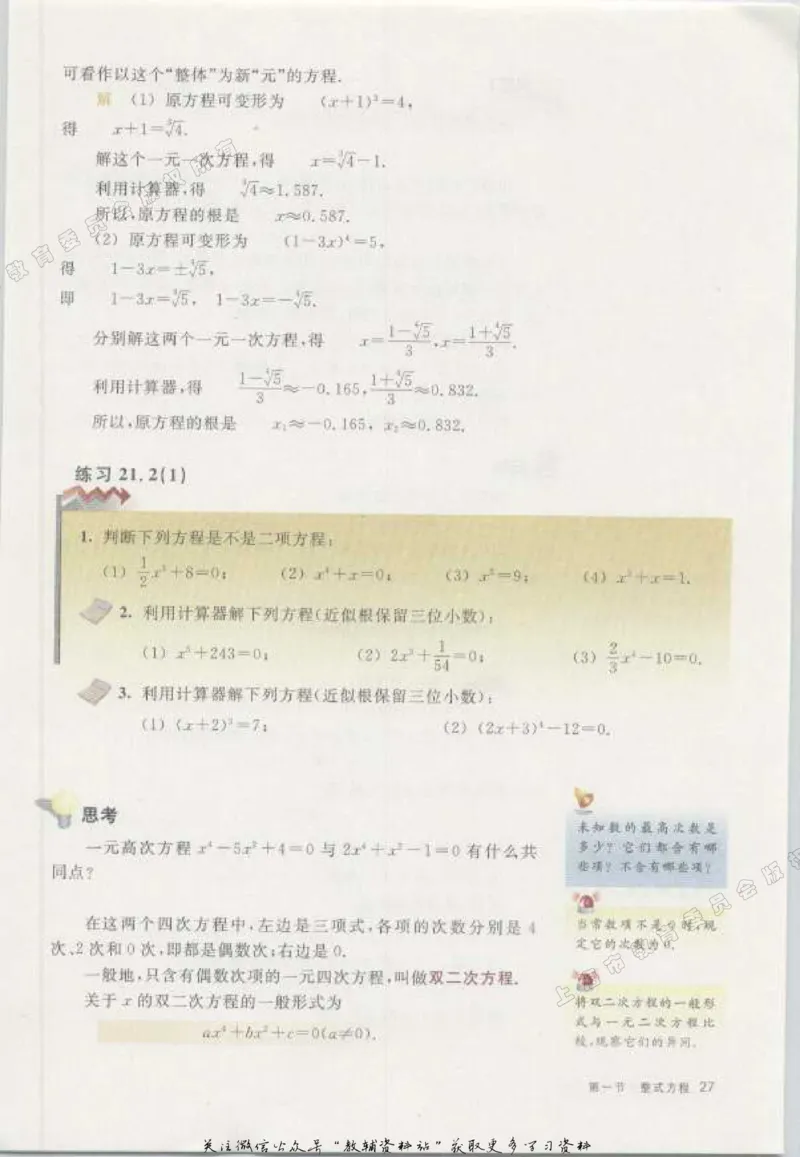 可看作以这个“整体”为新“元”的方程.
解 (1) 原方程可变形为 (x+1)³=4,
得 x+1=∛4.
解这个一元一次方程,得 x=∛4-1.
利用计算器,得 ∛4≈1.587.
所以,原方程的根是 x≈0.587.
(2) 原方程可变形为 (1-3x)⁴=5,
得 1-3x=±∜5,
即 1-3x=∜5, 1-3x=-∜5.
分别解这两个一元一次方程,得 x=(1-∜5)/3, x=(1+∜5)/3.
利用计算器,得 (1-∜5)/3≈-0.165, (1+∜5)/3≈0.832.
所以,原方程的根是 x₁≈-0.165, x₂≈0.832.
练习 21.2(1)
1. 判断下列方程是不是二项方程:
(1) 1/2x³+8=0; (2) x⁴+x=0; (3) x⁵=9; (4) x³+x=1.
2. 利用计算器解下列方程(近似根保留三位小数):
(1) x⁵+243=0; (2) 2x³+1/54=0; (3) 2/3x⁴-10=0.
3. 利用计算器解下列方程(近似根保留三位小数):
(1) (x+2)³=7; (2) (2x+3)⁴-12=0.
思考
一元高次方程 x⁴-5x²+4=0 与 2x⁴+x²-1=0 有什么共
同点?
未知数的最高次数是
多少? 它们都含有哪
些项? 不含有哪些项?
在这两个四次方程中,左边是三项式,各项的次数分别是 4
次、2 次和 0 次,即都是偶数次;右边是 0.
当常数项不是 0 时,规
定它的次数为 0.
一般地,只含有偶数次项的一元四次方程,叫做双二次方程.
关于 x 的双二次方程的一般形式为
ax⁴+bx²+c=0(a≠0).
将双二次方程的一般形
式与一元二次方程比
较,观察它们的异同.
第一节 整式方程 27
关注微信公众号“教辅资料站”获取更多学习资料
教育委员会版权所有
上海市教育委员会版权